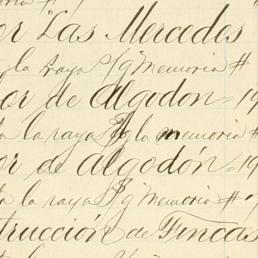 or "Las Mercedes
la raya S/g memoria #
or de Algodon = 19
a la raya S/g la memoria #
or de algodón = 19
a la raya S/g memoria #
trucción de Fincas